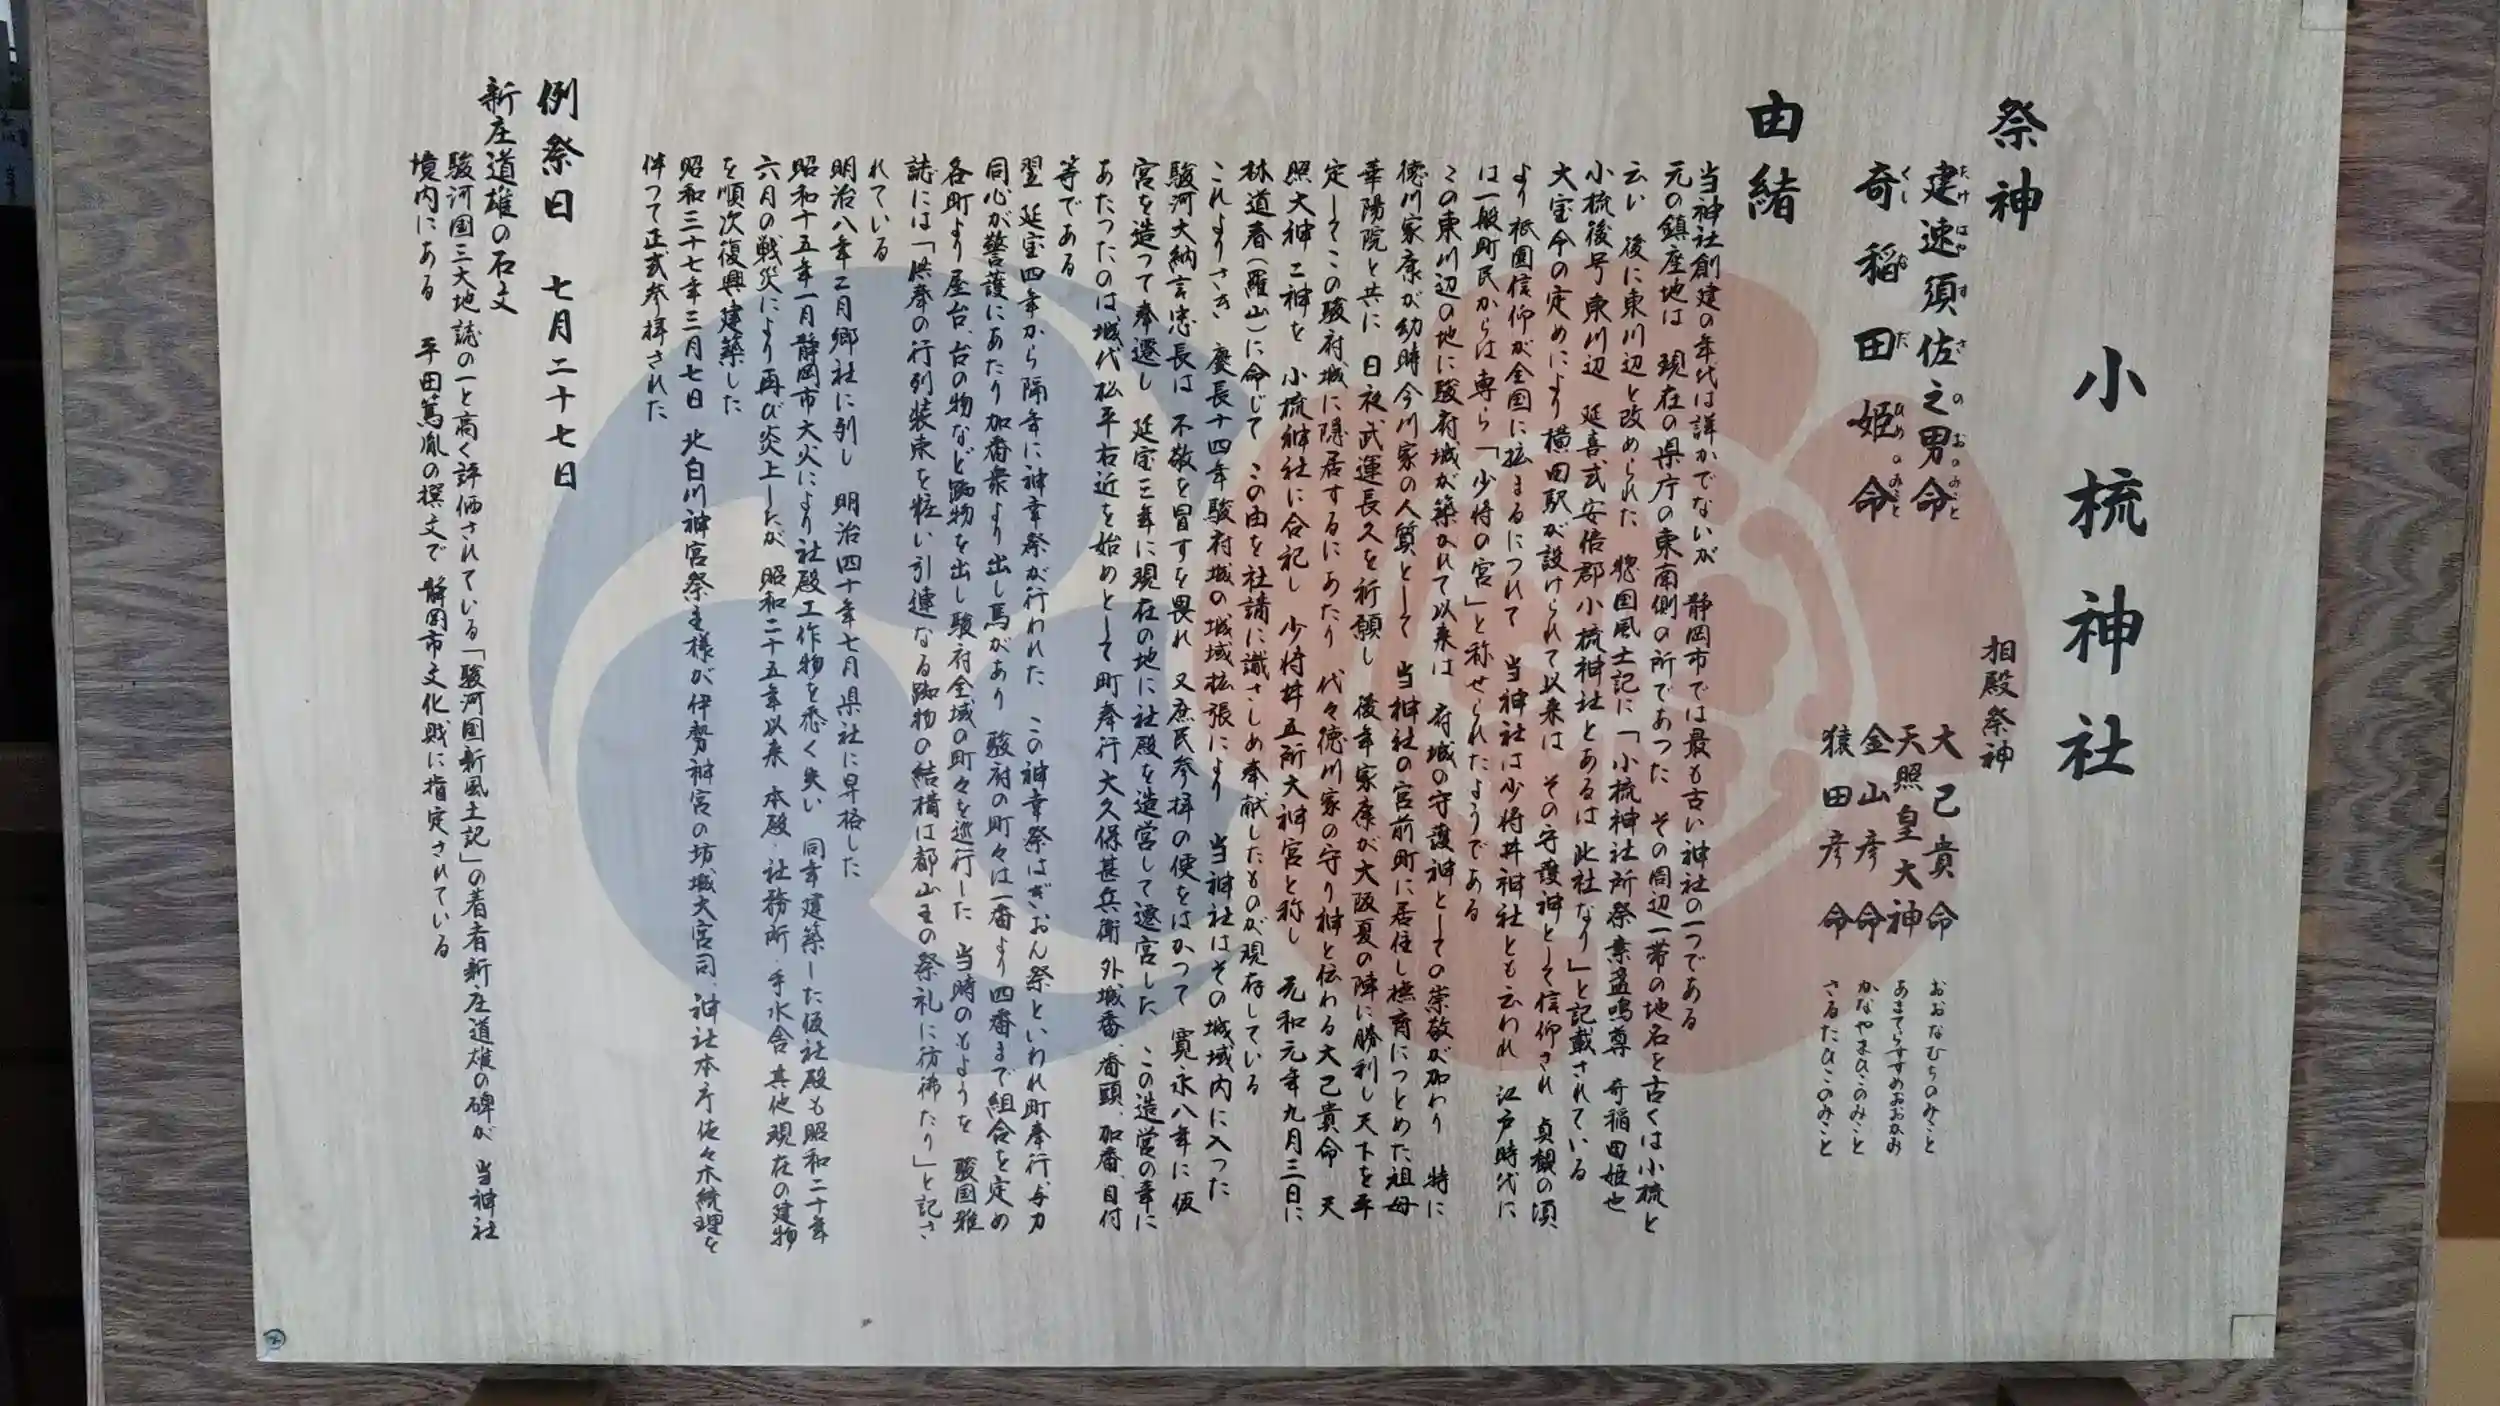 小梳神社
祭神
建速須佐之男命
たけはやすさのおのみこと
奇稲田姫命
くしなだひめのみこと
相殿祭神
大己貴命 おおなむちのみこと
天照皇大神 あまてらすすめおおかみ
金山彦命 かなやまひこのみこと
猿田彦命 さるたひこのみこと
由緒
当神社創建の年代は詳かでないが 静岡市では最も古い神社の一つである
元の鎮座地は 現在の県庁の東南側の所であつた その周辺一帯の地名を古くは小梳と
云い 後に東川辺と改められた 惣国風土記に「小梳神社所祭素盞嗚尊 奇稲田姫也
小梳後号東川辺 延喜式安倍郡小梳神社とあるは此社なり」と記載されている
大宝令の定めにより横田駅が設けられて以来は その守護神として信仰され 貞観の頃
より祇園信仰が全国に拡まるにつれて 当神社は少将井神社とも云われ 江戸時代に
は一般町民からは専ら「少将の宮」と称せられたようである
この東川辺の地に駿府城が築かれて以来は 府城の守護神としての崇敬が加わり 特に
徳川家康が幼時今川家の人質として 当神社の宮前町に居住し撫育につとめた祖母
華陽院と共に 日夜武運長久を祈願し 後年家康が大阪夏の陣に勝利し天下を平
定してこの駿府城に隠居するにあたり 代々徳川家の守り神と伝わる大己貴命 天
照大神二神を 小梳神社に合祀し 少将井五所大神宮と称し 元和元年九月三日に
林道春(羅山)に命じて この由を社記に識さしめ奉献したものが現存している
これよりさき 慶長十四年駿府城の城域拡張により 当神社はその城域内に入つた
駿河大納言忠長は 不敬を冒すを畏れ 又庶民参拝の便をはかつて 寛永八年に仮
宮を造つて奉遷し 延宝三年に現在の地に社殿を造営して遷宮した この造営の事に
あたつたのは城代松平右近を始めとして町奉行大久保甚兵衛 外城番、番頭、加番、目付
等である
翌 延宝四年から隔年に神幸祭が行われた この神幸祭はぎおん祭といわれ町奉行、与力
同心が警護にあたり加番衆より出し馬があり 駿府の町々は一番より四番まで組合を定め
各町より屋台、台の物など踟物を出し駿府全域の町々を巡行した 当時のもようを 駿国雅
誌には「供奉の行列装束を粧い引連なる踟物の結構は都山王の祭礼に彷彿たり」と記さ
れている
明治八年二月郷社に列し 明治四十年七月県社に昇格した
昭和十五年一月静岡市大火により社殿工作物を悉く失い 同年建築した仮社殿も昭和二十年
六月の戦災により再び炎上したが 昭和二十五年以来 本殿・社務所・手水舎 其他現在の建物
を順次復興建築した
昭和三十七年三月七日 北白川神宮祭主様が伊勢神宮の坊城大宮司、神社本庁佐々木統理を
伴つて正式参拝された
例祭日 七月二十七日
新庄道雄の石文
駿河国三大地誌の一と高く評価されている「駿河国新風土記」の着者新庄道雄の碑が 当神社
境内にある 平田篤胤の撰文で 静岡市文化財に指定されている